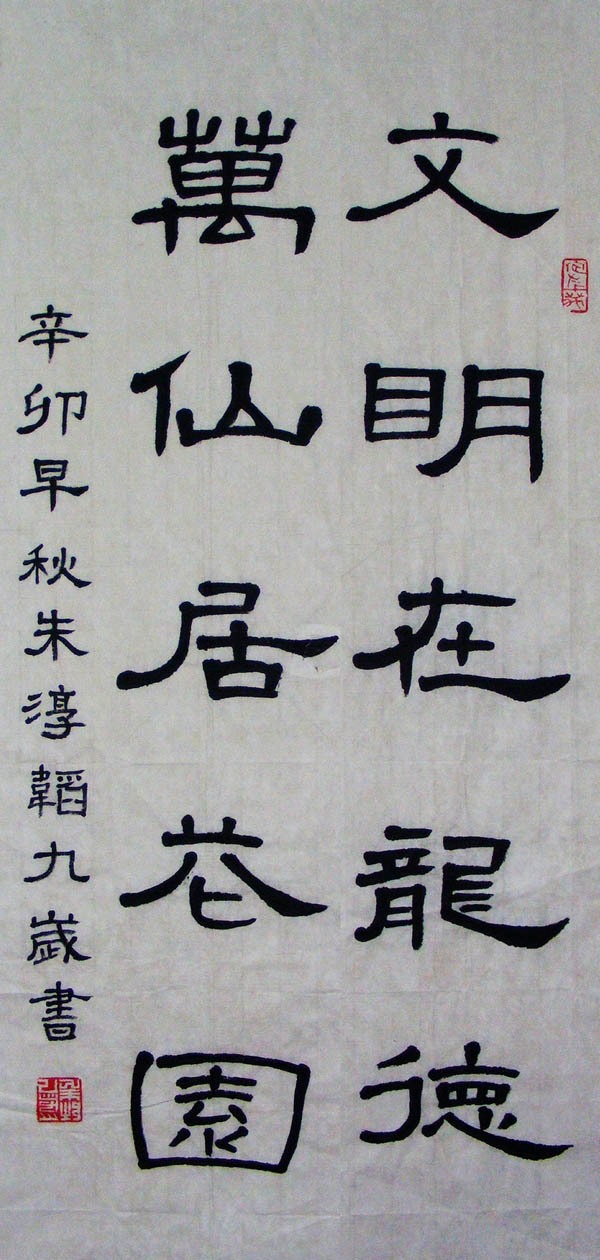 文明在龍德
萬仙居花園
辛卯早秋朱淳韜九歲書